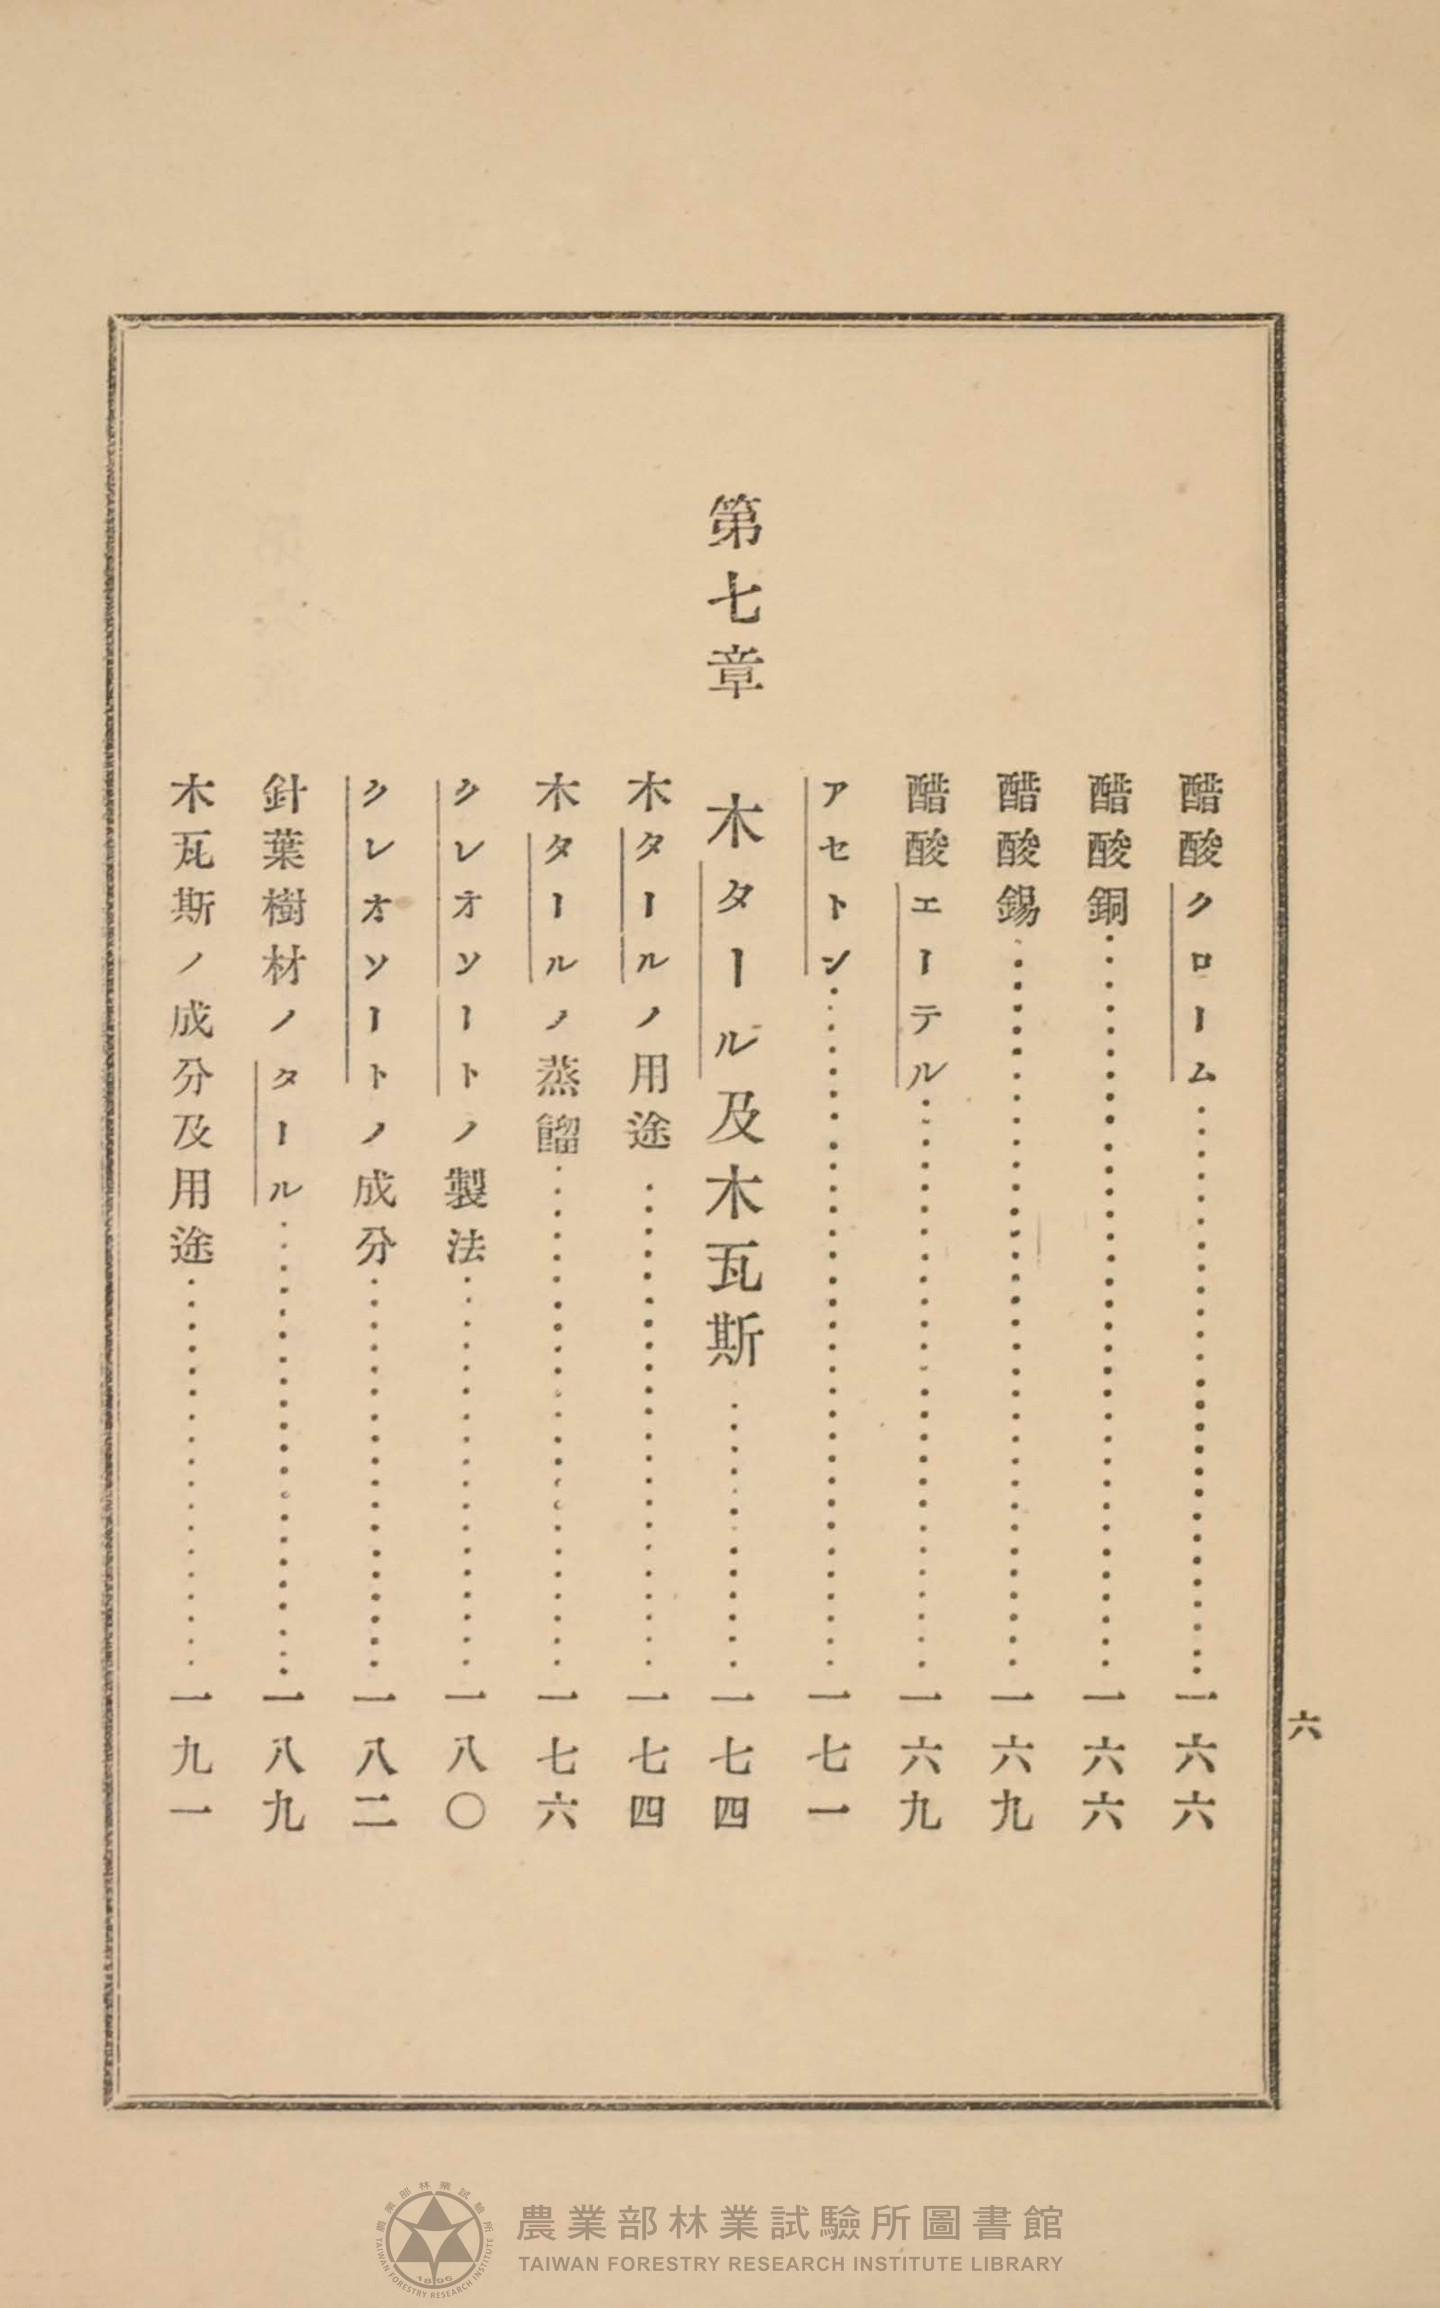 六
醋酸クローム……一六六
醋酸銅……一六六
醋酸錫……一六九
醋酸エーテル……一六九
アセトン……一七一
第七章 木タール及木瓦斯……一七四
木タールノ用途……一七四
木タールノ蒸餾……一七六
クレオソートノ製法……一八〇
クレオソートノ成分……一八二
針葉樹材ノタール……一八九
木瓦斯ノ成分及用途……一九一
農業部林業試驗所圖書館
TAIWAN FORESTRY RESEARCH INSTITUTE LIBRARY
農業部林業試驗所
TAIWAN FORESTRY RESEARCH INSTITUTE
1896